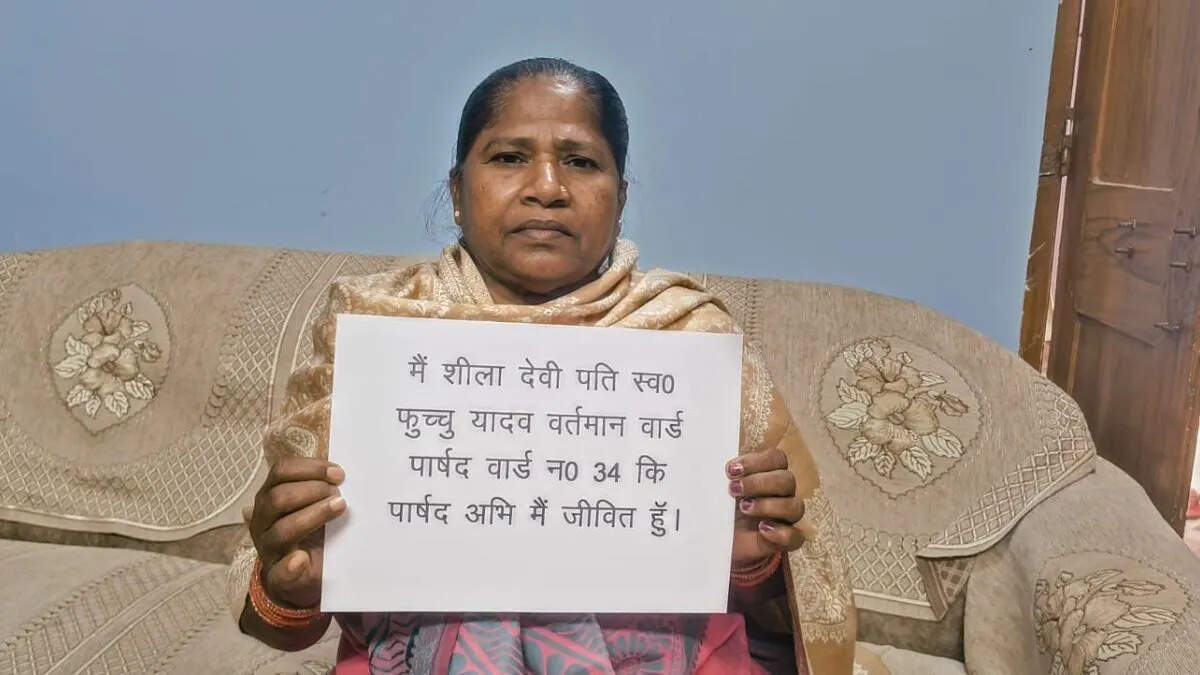 मैं शीला देवी पति स्व0
फुच्चु यादव वर्तमान वार्ड
पार्षद वार्ड न0 34 कि
पार्षद अभि मैं जीवित हुॅ।